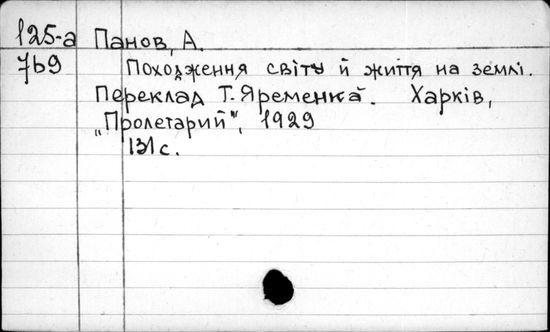 125-а Панов, А.
769 Походження світу й життя на землі.
Переклад Т. Яременка. Харків,
„Пролетарий", 1929
131 с.